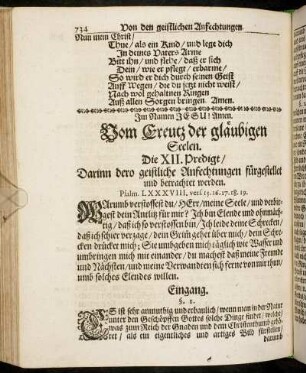 734 Von den geistlichen Anfechtungen
Nun mein Christ/
Thue/ als ein Kind/ und lege dich
In deines Vaters Arme
Bitt ihn/ und flehe/ daß er sich
Dein/ wie er pflege/ erbarme/
So wird er dich durch seinen Geist
Auff Wegen/ die du jetzt nicht weist/
Nach wol gehaltnen Ringen
Auß allen Sorgen bringen. Amen.
Im Namen JESU! Amen.
Vom Creutz der gläubigen
Seelen.
Die XII. Predigt/
Darinn dero geistliche Anfechtungen fürgestellet
und betrachtet werden.
Psalm. LXXXVIII, vers. 15. 16. 17. 18. 19.
Warum verstossest du/ HErr/ meine Seele/ und verbir-
gest dein Antlitz für mir? Ich bin Elende und ohnmäch-
tig/ daß ich so verstossen bin/ Ich leide deine Schrecken/
daß ich schier verzage/ dein Grim̃ gehet über mich/ dein Schre-
cken drücket mich; Sie umbgeben mich täglich wie Wasser und
umbringen mich mit einander/ du machest daß meine Freunde
und Nächsten/ und meine Verwandten sich ferne von mir thun/
umb solches Elendes willen.
Eingang.
§. 1.
ES ist sehr anmuthig und erbaulich/ wenn man in der Natur
unter den Geschöpffen Gottes solche Dinge findet/ welche/
was zum Reich der Gnaden und dem Christenthumb gehö-
ret/ als ein eigentliches und artiges Bild fürstellen/